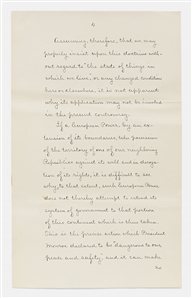 6
Reasoning, therefore, that we may
properly insist upon this doctrine with-
out regard to "the state of things in
which we live," or any changed condition
here or elsewhere, it is not apparent
why its application may not be invoked
in the present controversy.
If a European Power, by an ex-
tension of its boundaries, takes possession
of the territory of one of our neighboring
Republics against its will and in deroga-
tion of its rights, it is difficult to see
why, to that extent, such European Power
does not thereby attempt to extend its
system of government to that portion
of this continent which is thus taken.
This is the precise action which President
Monroe declared to be "dangerous to our
peace and safety," and it can make
no